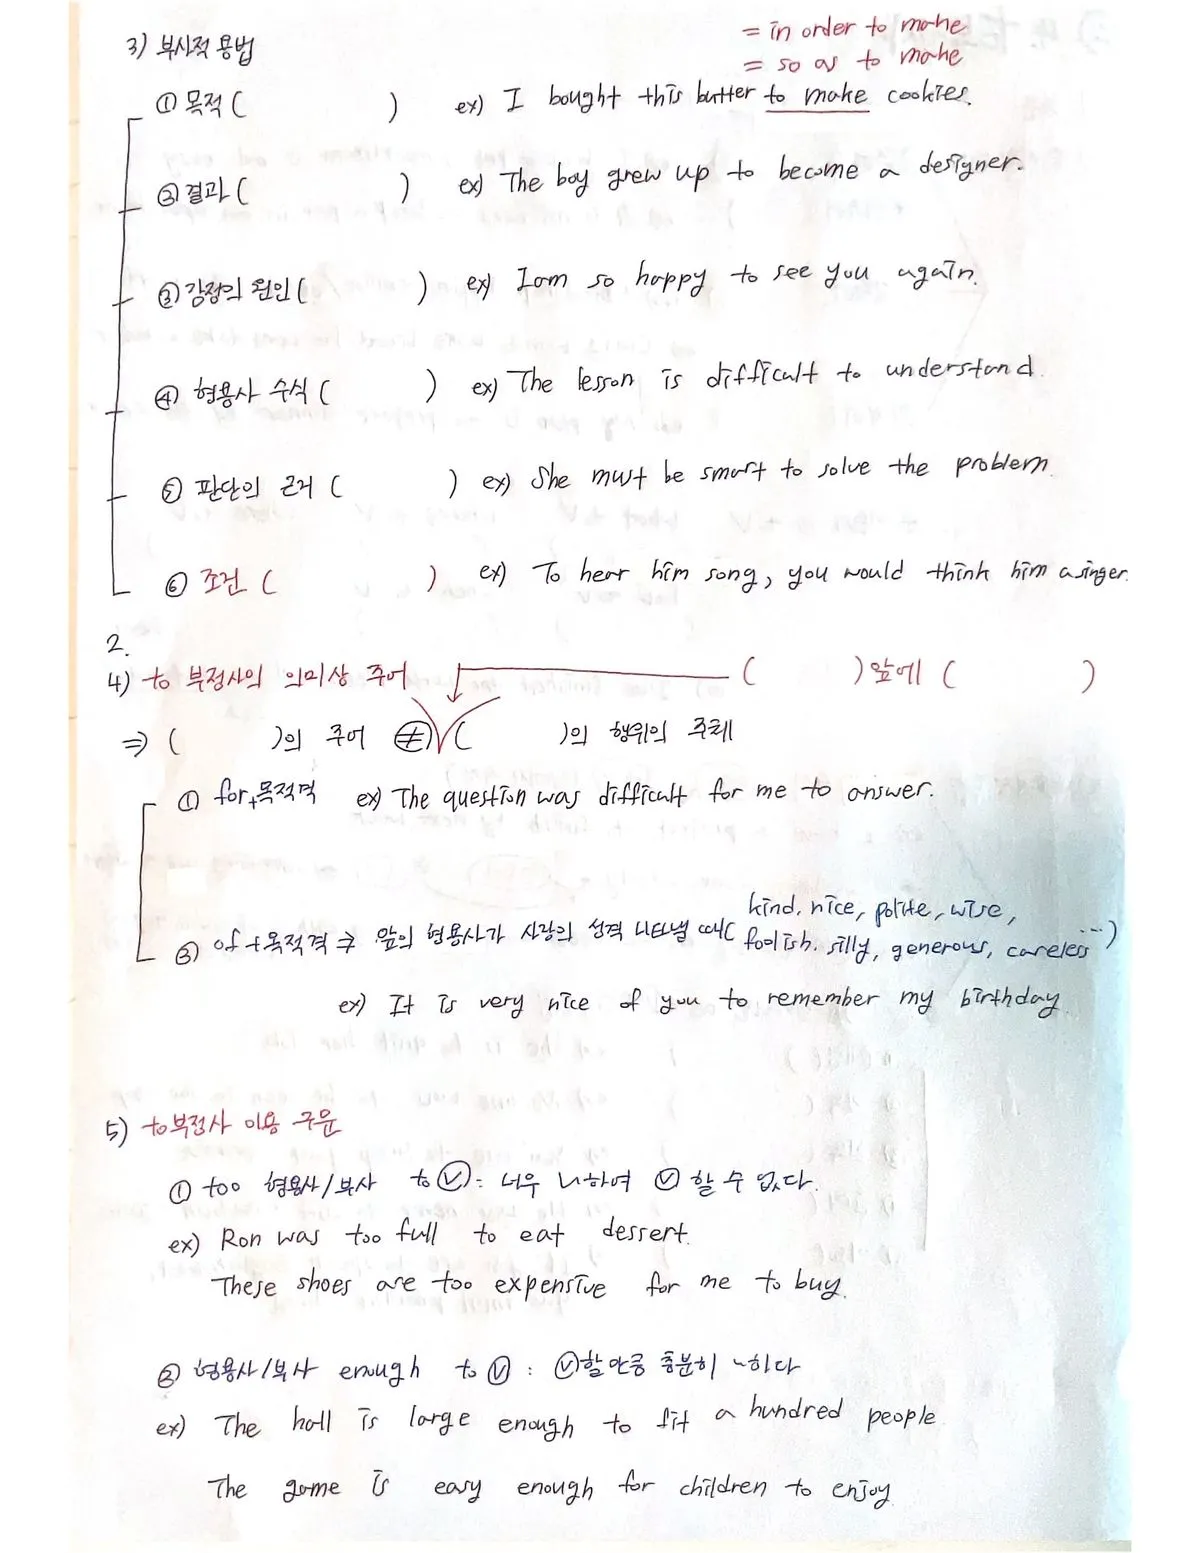 3) 부사적 용법
= in order to make
= so as to make
① 목적 (          ) ex) I bought this butter to make cookies.
② 결과 (          ) ex) The boy grew up to become a designer.
③ 감정의 원인 (          ) ex) I am so happy to see you again.
④ 형용사 수식 (          ) ex) The lesson is difficult to understand.
⑤ 판단의 근거 (          ) ex) She must be smart to solve the problem.
⑥ 조건 (          ) ex) To hear him song, you would think him a singer.
2.
4) to 부정사의 의미상 주어 (          )앞에 (          )
⇒ (          )의 주어 ≠ (          )의 행위의 주체
① for+목적격 ex) The question was difficult for me to answer.
② of+목적격 → 앞의 형용사가 사람의 성격 나타낼 때( kind, nice, polite, wise,
foolish, silly, generous, careless ...)
ex) It is very nice of you to remember my birthday.
5) to부정사 이용 구문
① too 형용사/부사 to Ⓥ: 너무 ~하여 Ⓥ 할 수 없다.
ex) Ron was too full to eat dessert.
These shoes are too expensive for me to buy.
② 형용사/부사 enough to Ⓥ : Ⓥ할 만큼 충분히 ~하다
ex) The hall is large enough to fit a hundred people.
The game is easy enough for children to enjoy.